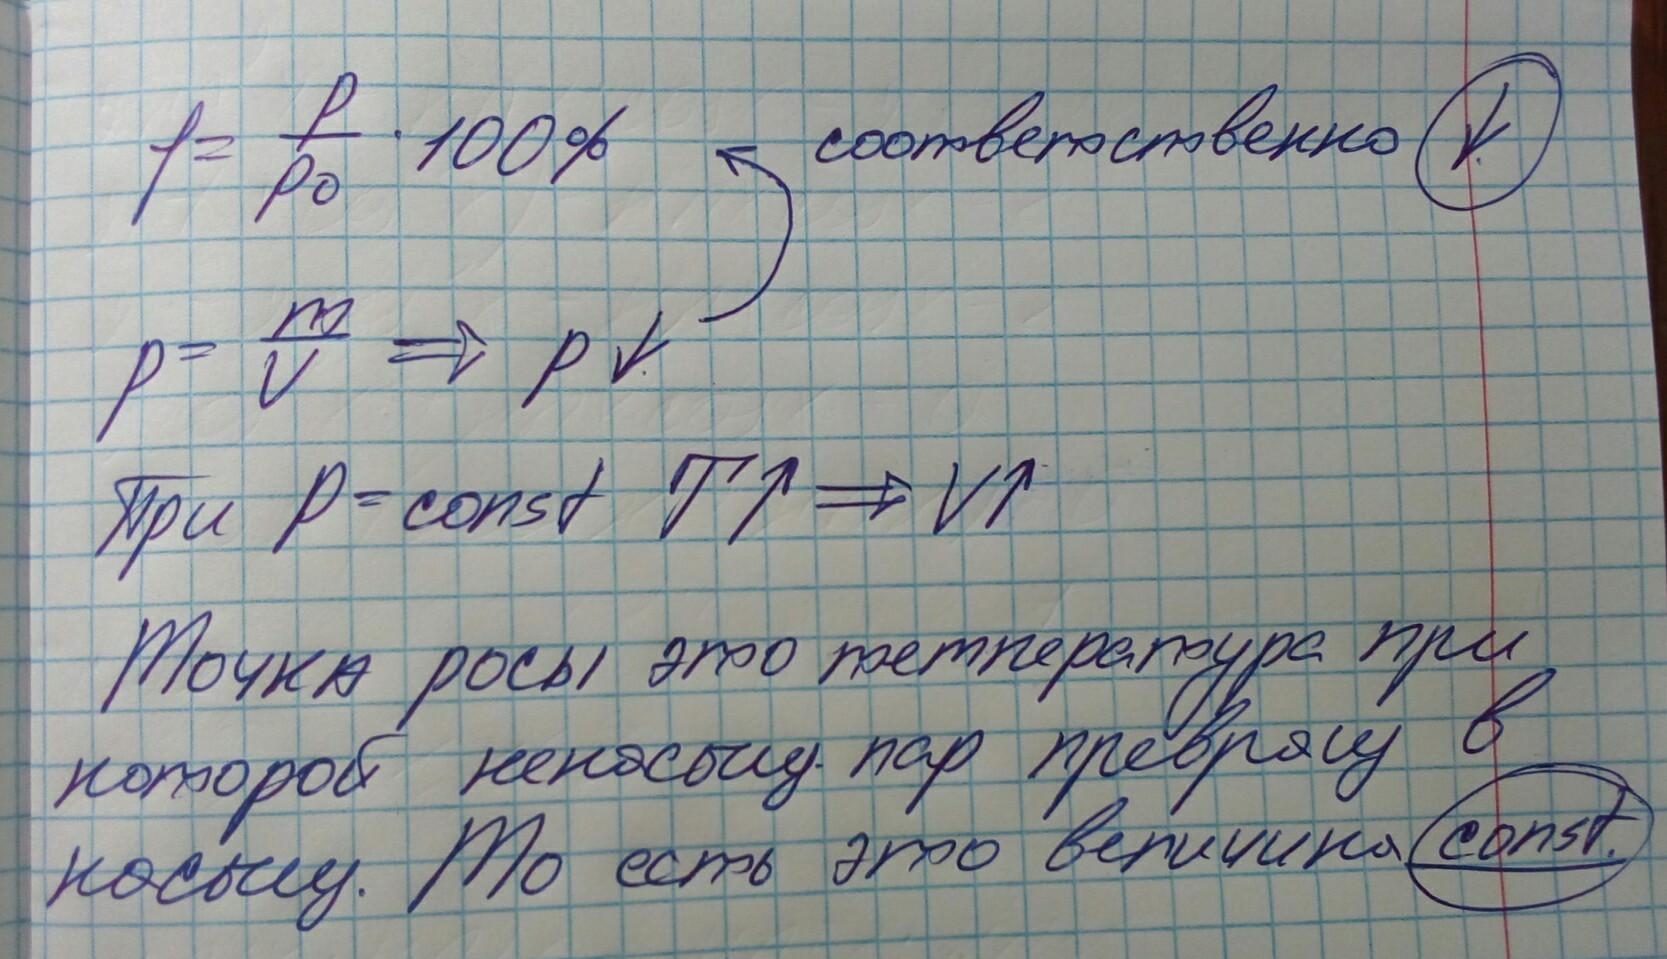 f = p/p0 · 100% ← соответственно ↓
p = m/V ⇒ p↓
При P = const T↑ ⇒ V↑
Точка росы это температура при
которой ненасыщ. пар превращ в
насыщ. То есть это величина const.